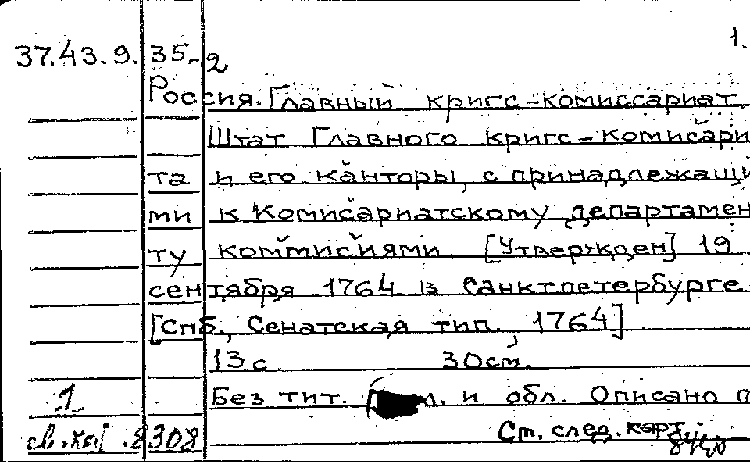 1.
37.43.9. 35-2
Россия. Главный кригс-комиссариат.
Штат Главного кригс-комисари
та и его канторы, с принадлежащи
ми к комисариатскому департамен
ту коммисиями [Утвержден] 19
сентября 1764 в Санктпетербурге
[Спб., Сенатская тип. 1764]
13 с 30 см.
Без тит. л. и обл. Описано п
1 См. след. карт.
св. кат. 8308